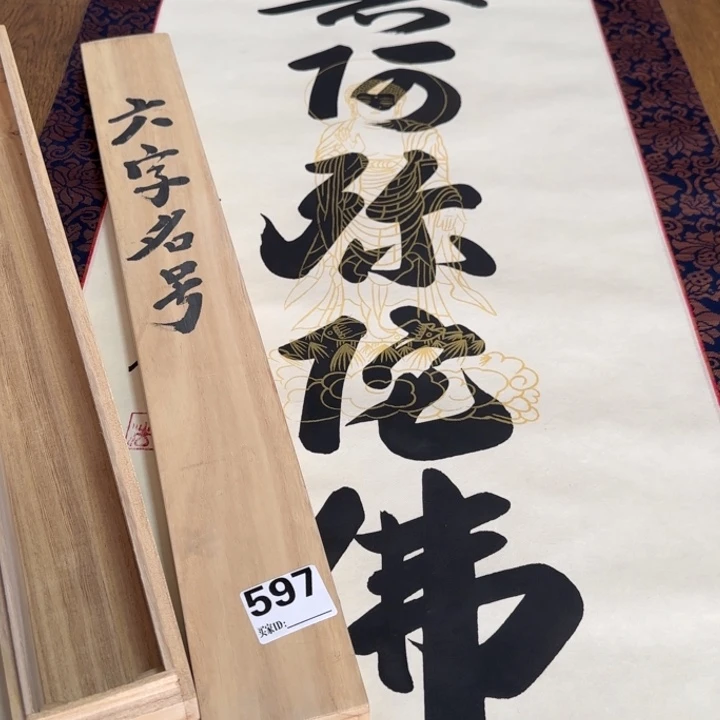 六字名号
阿弥陀佛
597
买家ID: